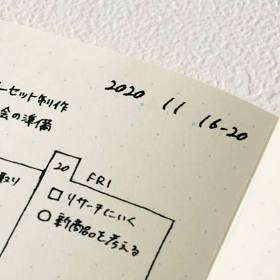 2020 11 16-20
ーセット制作
会の準備
取り
20 FRI
□ リサーチにいく
○ 新商品を考える